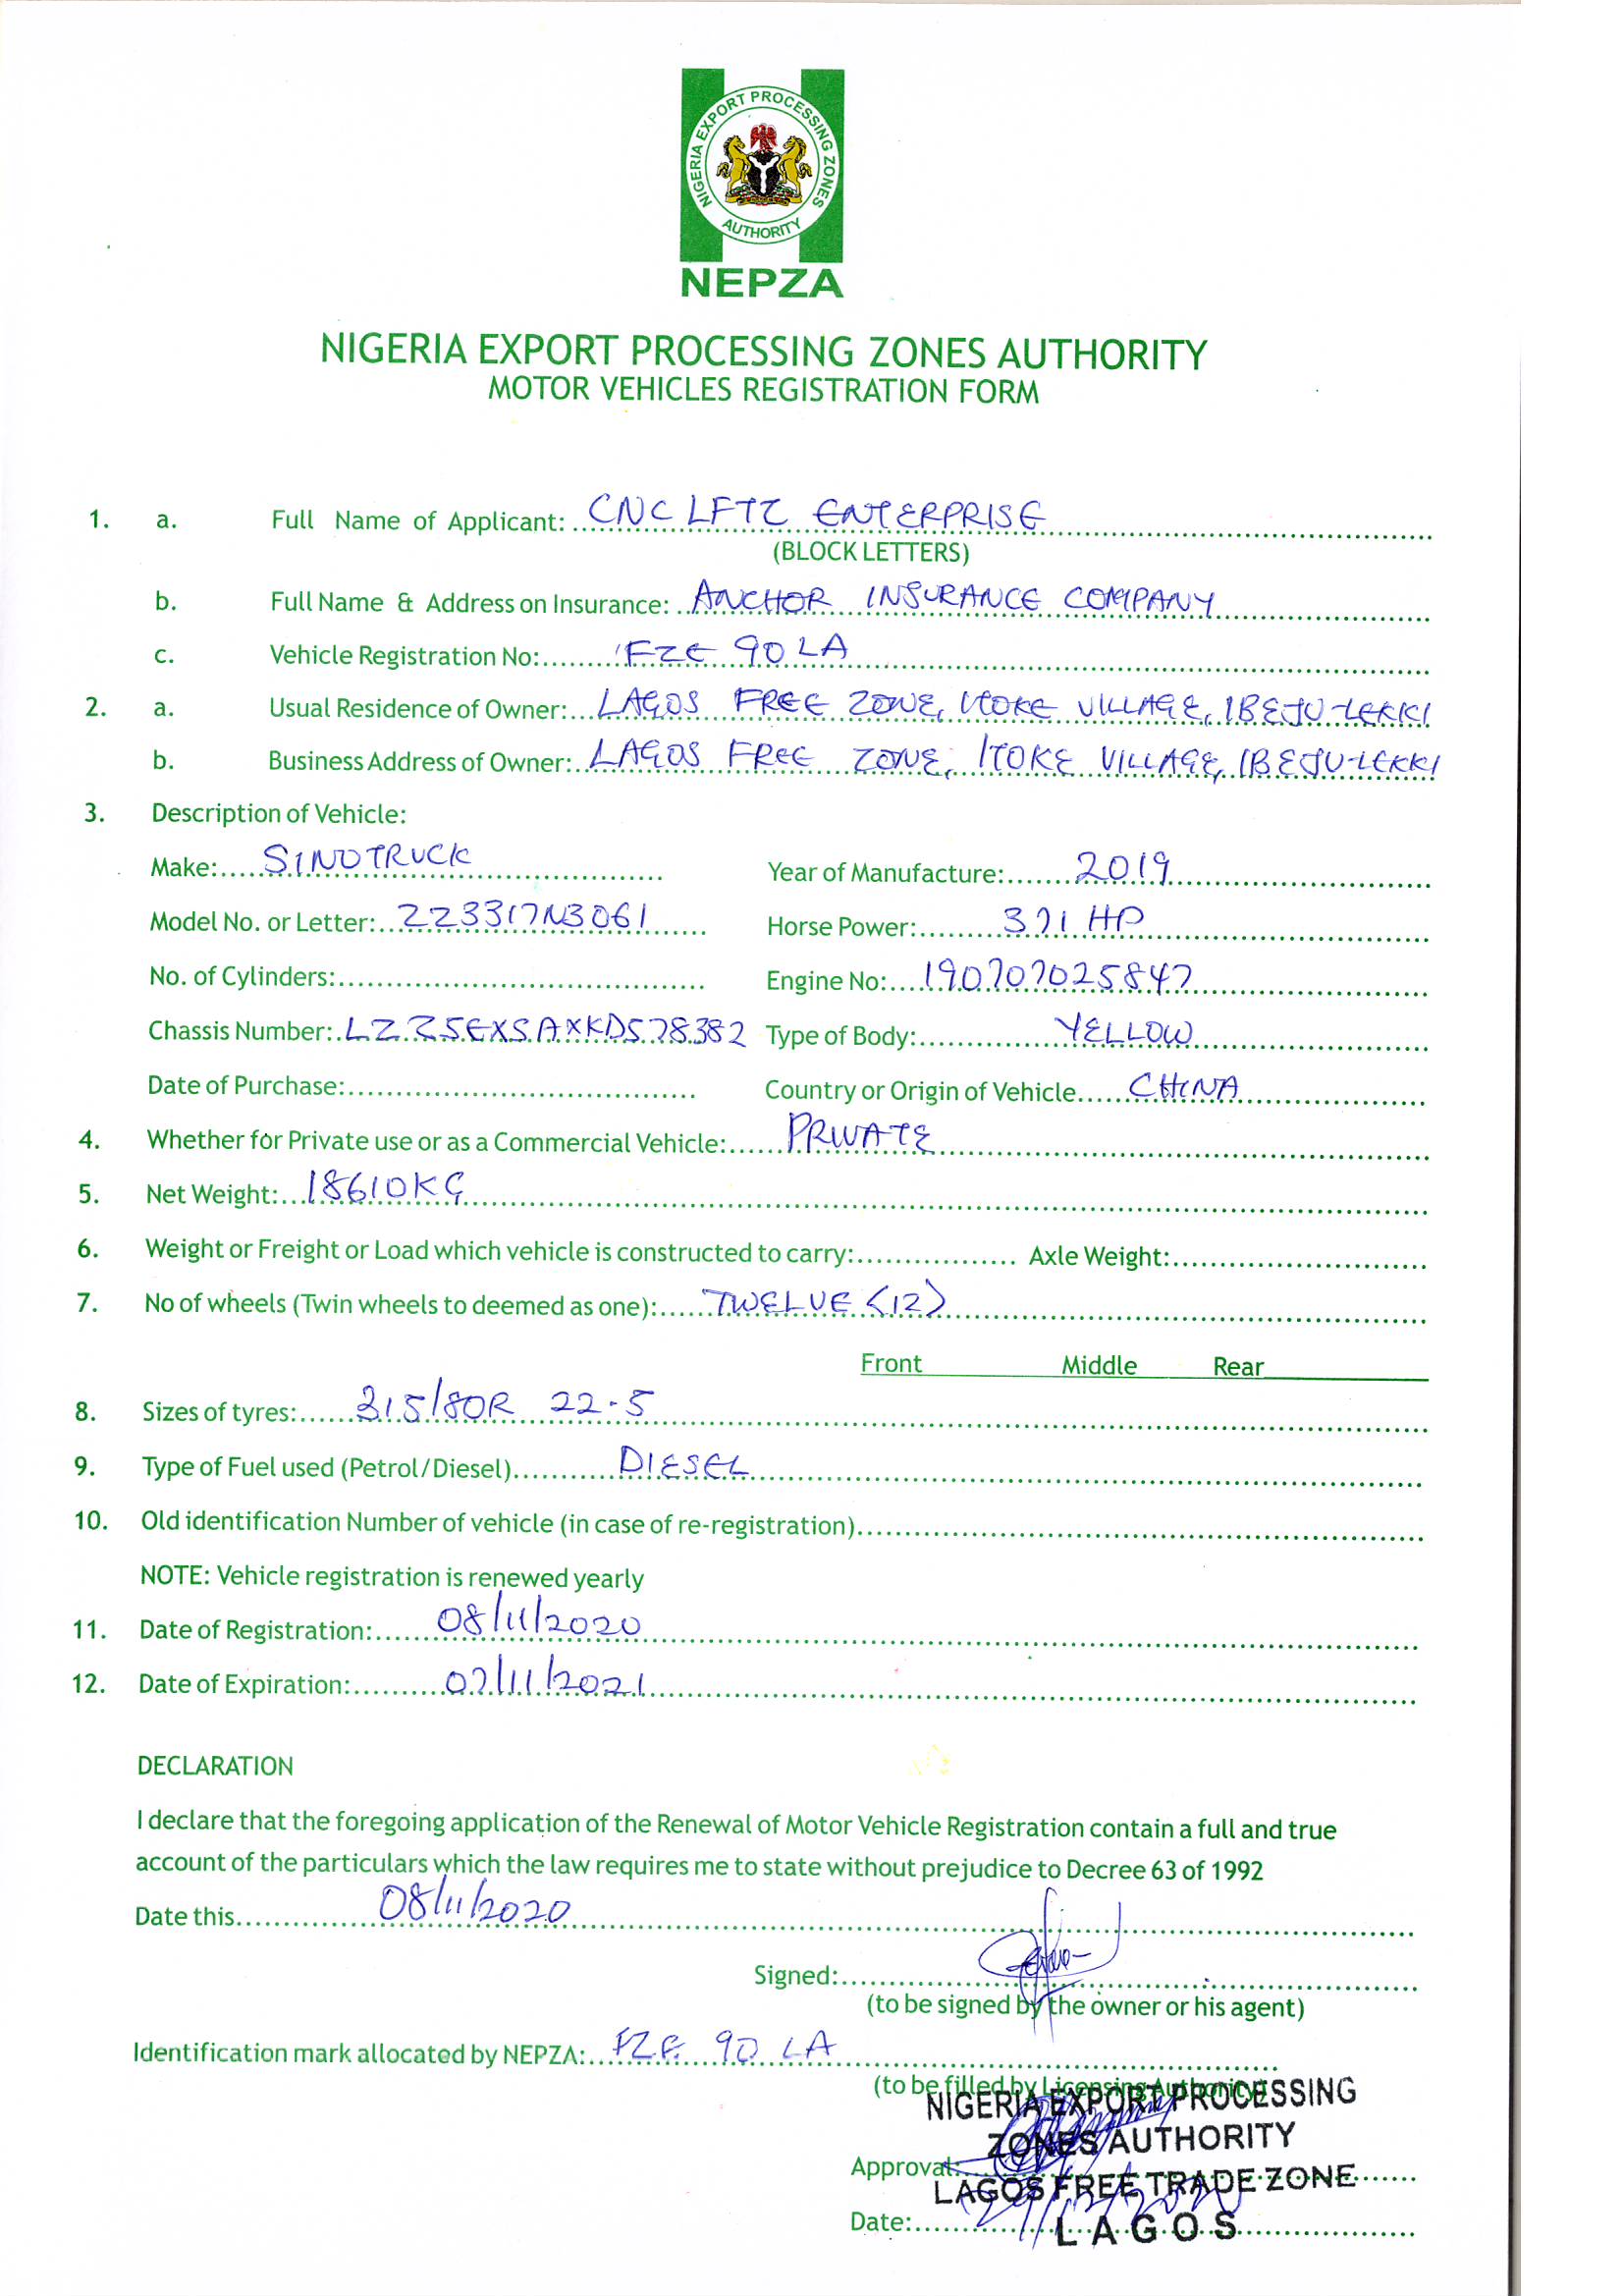 NIGERIA EXPORT PROCESSING ZONES
AUTHORITY
NEPZA
NIGERIA EXPORT PROCESSING ZONES AUTHORITY
MOTOR VEHICLES REGISTRATION FORM
1. a. Full Name of Applicant: CNC LFTZ ENTERPRISE
(BLOCK LETTERS)
b. Full Name & Address on Insurance: ANCHOR INSURANCE COMPANY
c. Vehicle Registration No: FZE 90 LA
2. a. Usual Residence of Owner: LAGOS FREE ZONE, ITOKE VILLAGE, IBEJU-LEKKI
b. Business Address of Owner: LAGOS FREE ZONE, ITOKE VILLAGE, IBEJU-LEKKI
3. Description of Vehicle:
Make: SINOTRUCK Year of Manufacture: 2019
Model No. or Letter: ZZ3317N3061 Horse Power: 371 HP
No. of Cylinders: Engine No: 190707025847
Chassis Number: LZZ5EXSAXKD578382 Type of Body: YELLOW
Date of Purchase: Country or Origin of Vehicle CHINA
4. Whether for Private use or as a Commercial Vehicle: PRIVATE
5. Net Weight: 18610KG
6. Weight or Freight or Load which vehicle is constructed to carry: Axle Weight:
7. No of wheels (Twin wheels to deemed as one): TWELVE (12)
Front Middle Rear
8. Sizes of tyres: 315/80R 22.5
9. Type of Fuel used (Petrol/Diesel) DIESEL
10. Old identification Number of vehicle (in case of re-registration)
NOTE: Vehicle registration is renewed yearly
11. Date of Registration: 08/11/2020
12. Date of Expiration: 07/11/2021
DECLARATION
I declare that the foregoing application of the Renewal of Motor Vehicle Registration contain a full and true
account of the particulars which the law requires me to state without prejudice to Decree 63 of 1992
Date this 08/11/2020
Signed:
(to be signed by the owner or his agent)
Identification mark allocated by NEPZA: FZE 90 LA
(to be filled by Licensing Authority)
NIGERIA EXPORT PROCESSING
ZONES AUTHORITY
Approval:
LAGOS FREE TRADE ZONE
Date: 29/12/2020
LAGOS